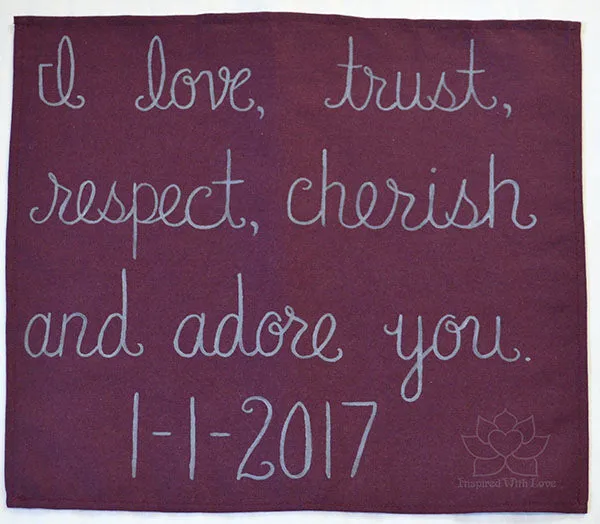 I love, trust,
respect, cherish
and adore you.
1-1-2017
Inspired With Love